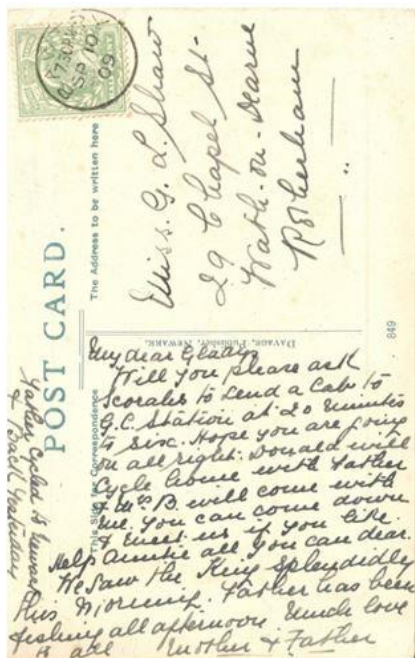 POST CARD.
The Address to be written here
This Side for Correspondence
DAVAGE, Publisher, NEWARK.
849
7.30 PM
SP 10
09
Miss. G. L. Shaw
29 Chapel St.
Wath-on-Dearne
Rotherham
My dear Gladys
Will you please ask
Scorales to send a Cab to
G.C. Station at 20 minutes
to six. Hope you are going
on all right. Donald will
Cycle home with Father
& Mrs B. will come with
me. You can come down
& meet us if you like.
Help Auntie all you can dear.
We saw the King splendidly
this morning. Father has been
fishing all afternoon. Much love
to all Mother & Father
Father Cycled to Newark
& Back Yesterday